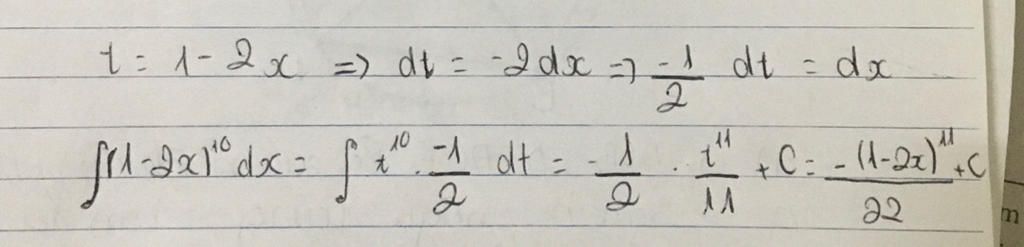 t = 1 - 2x => dt = -2dx => -1/2 dt = dx
∫(1-2x)^10 dx = ∫ t^10 . -1/2 dt = - 1/2 . t^11/11 + C = -(1-2x)^11/22 + C
m